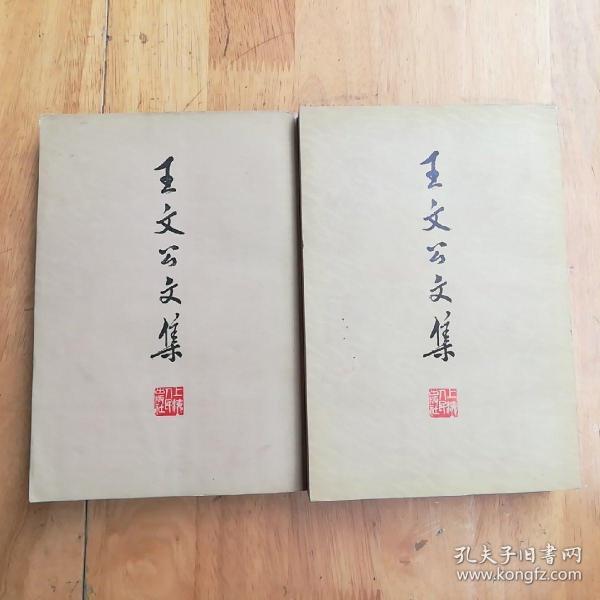 王文公文集
上海人民出版社
王文公文集
上海人民出版社
孔夫子旧書网
www.kongfz.com